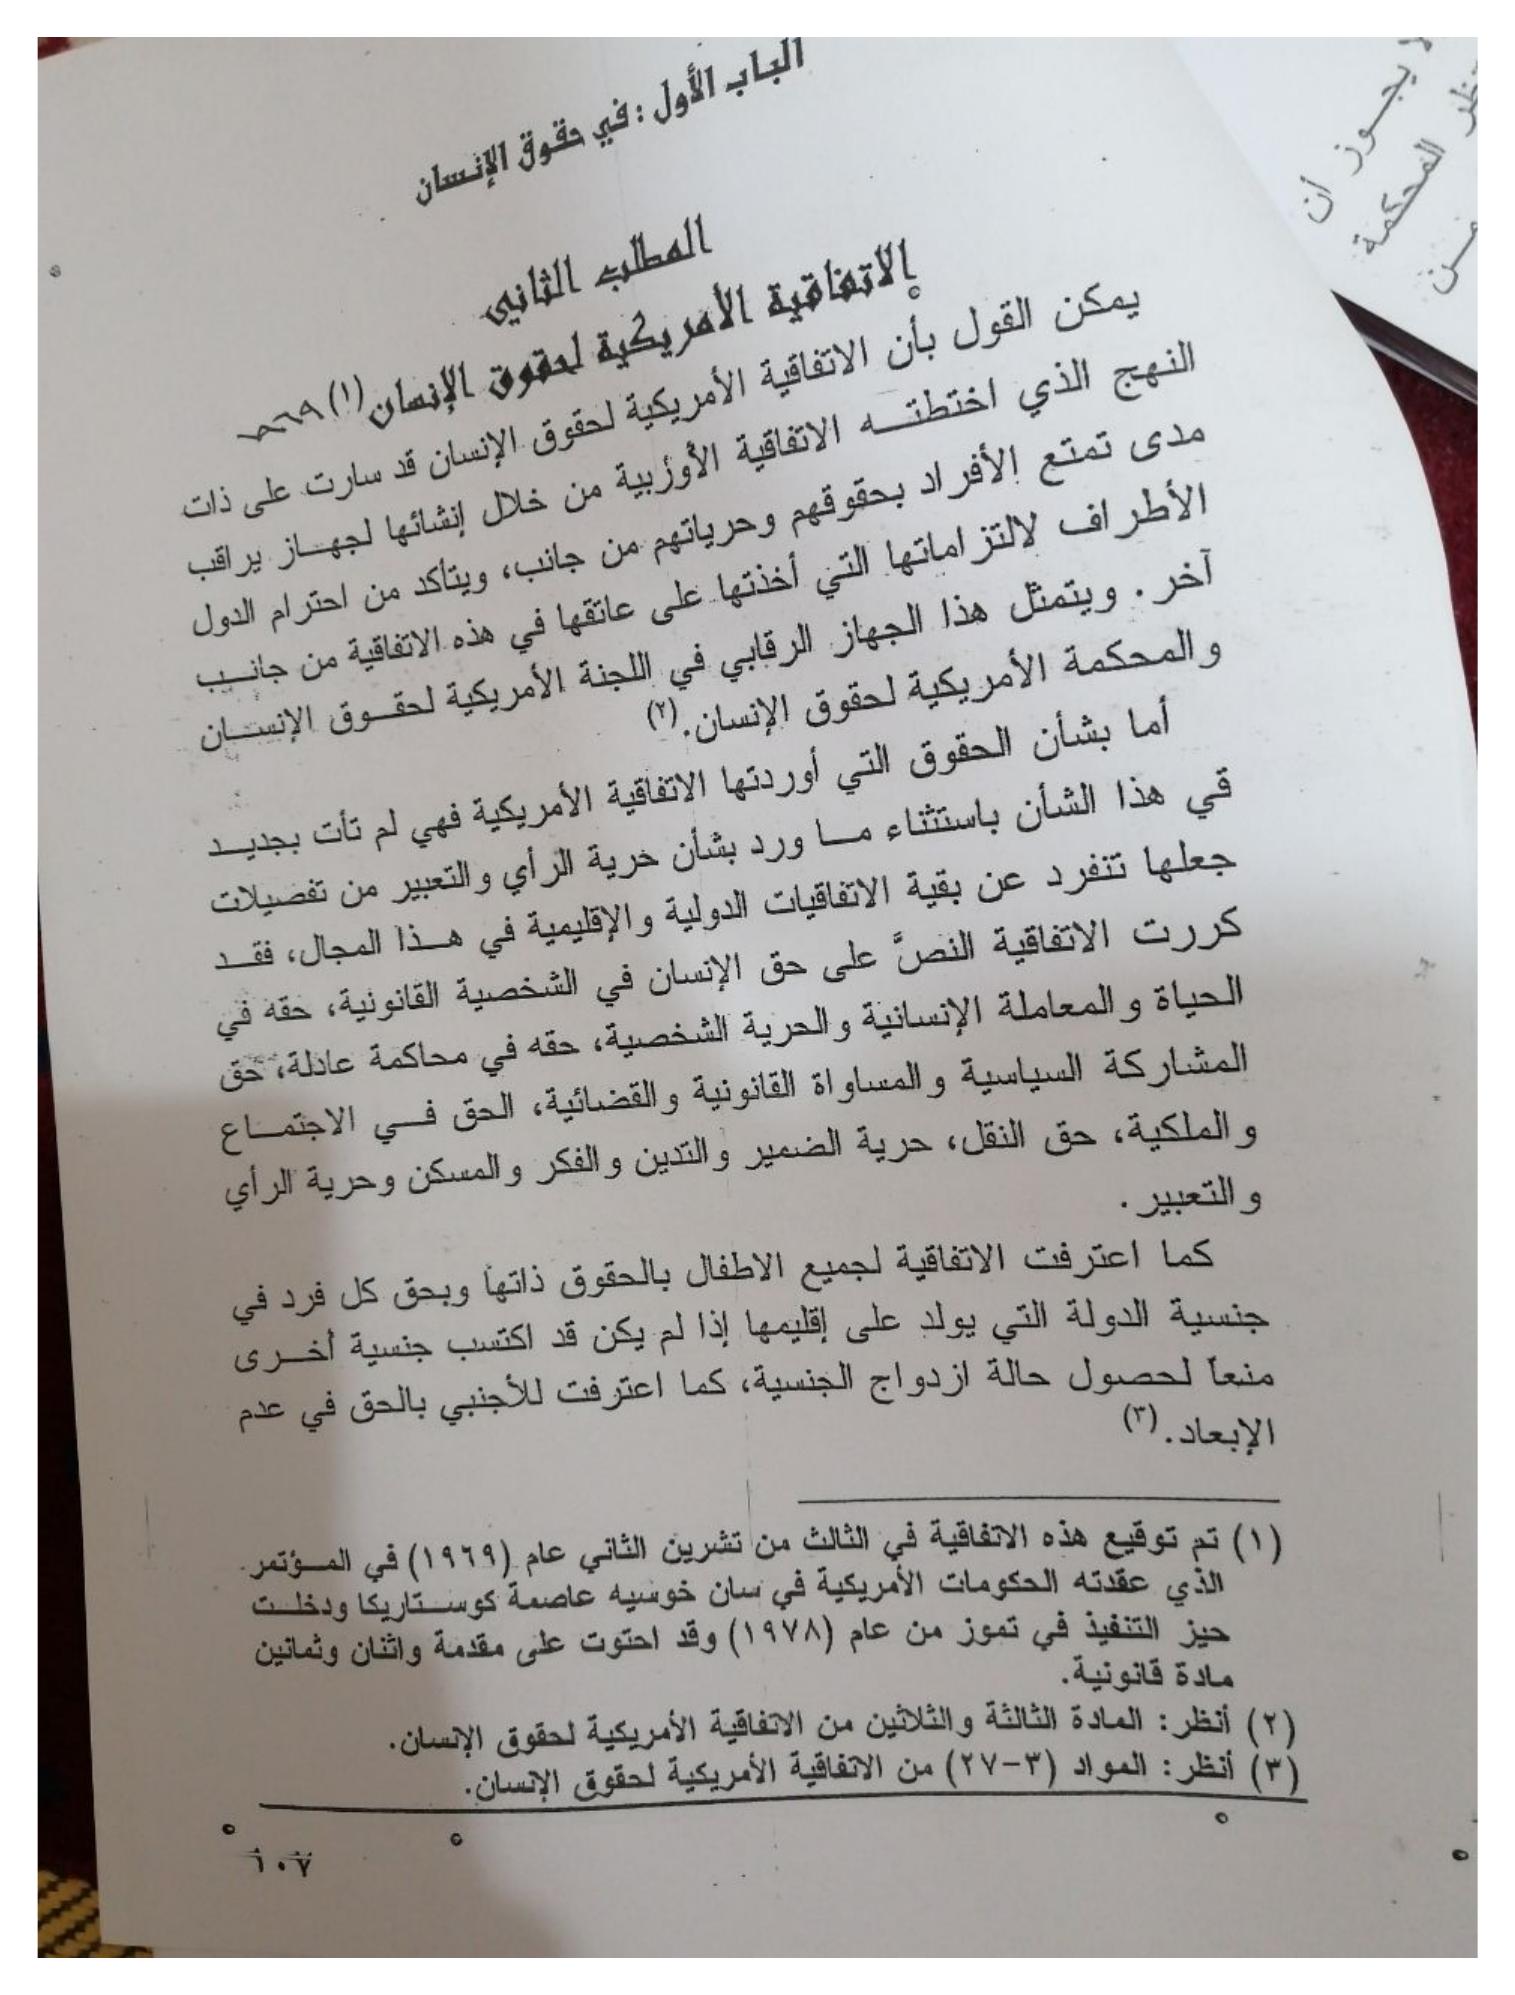 الباب الأول: في حقوق الإنسان
المطلب الثاني
الاتفاقية الأمريكية لحقوق الإنسان (١)
يمكن القول بأن الاتفاقية الأمريكية لحقوق الإنسان قد سارت على ذات
النهج الذي اختطتــه الاتفاقية الأوربية من خلال إنشائها لجهــاز يراقب
مدى تمتع الأفراد بحقوقهم وحرياتهم من جانب، ويتأكد من احترام الدول
الأطراف لالتزاماتها التي أخذتها على عاتقها في هذه الاتفاقية من جانــب
آخر. ويتمثل هذا الجهاز الرقابي في اللجنة الأمريكية لحقــوق الإنســان
والمحكمة الأمريكية لحقوق الإنسان.(٢)
أما بشأن الحقوق التي أوردتها الاتفاقية الأمريكية فهي لم تأت بجديــد
في هذا الشأن باستثناء مــا ورد بشأن حرية الرأي والتعبير من تفصيلات
جعلها تنفرد عن بقية الاتفاقيات الدولية والإقليمية في هــذا المجال، فقــد
كررت الاتفاقية النصَّ على حق الإنسان في الشخصية القانونية، حقه في
الحياة والمعاملة الإنسانية والحرية الشخصية، حقه في محاكمة عادلة، حق
المشاركة السياسية والمساواة القانونية والقضائية، الحق فــي الاجتمــاع
والملكية، حق النقل، حرية الضمير والتدين والفكر والمسكن وحرية الرأي
والتعبير.
كما اعترفت الاتفاقية لجميع الاطفال بالحقوق ذاتها وبحق كل فرد في
جنسية الدولة التي يولد على إقليمها إذا لم يكن قد اكتسب جنسية أخــرى
منعاً لحصول حالة ازدواج الجنسية، كما اعترفت للأجنبي بالحق في عدم
الإبعاد.(٣)
(١) تم توقيع هذه الاتفاقية في الثالث من تشرين الثاني عام (١٩٦٩) في المــؤتمر
الذي عقدته الحكومات الأمريكية في سان خوسيه عاصمة كوســتاريكا ودخلــت
حيز التنفيذ في تموز من عام (١٩٧٨) وقد احتوت على مقدمة واثنان وثمانين
مادة قانونية.
(٢) أنظر: المادة الثالثة والثلاثين من الاتفاقية الأمريكية لحقوق الإنسان.
(٣) أنظر: المواد (٣-٢٧) من الاتفاقية الأمريكية لحقوق الإنسان.
١٠٧
لا يجــوز أن
المحكمة